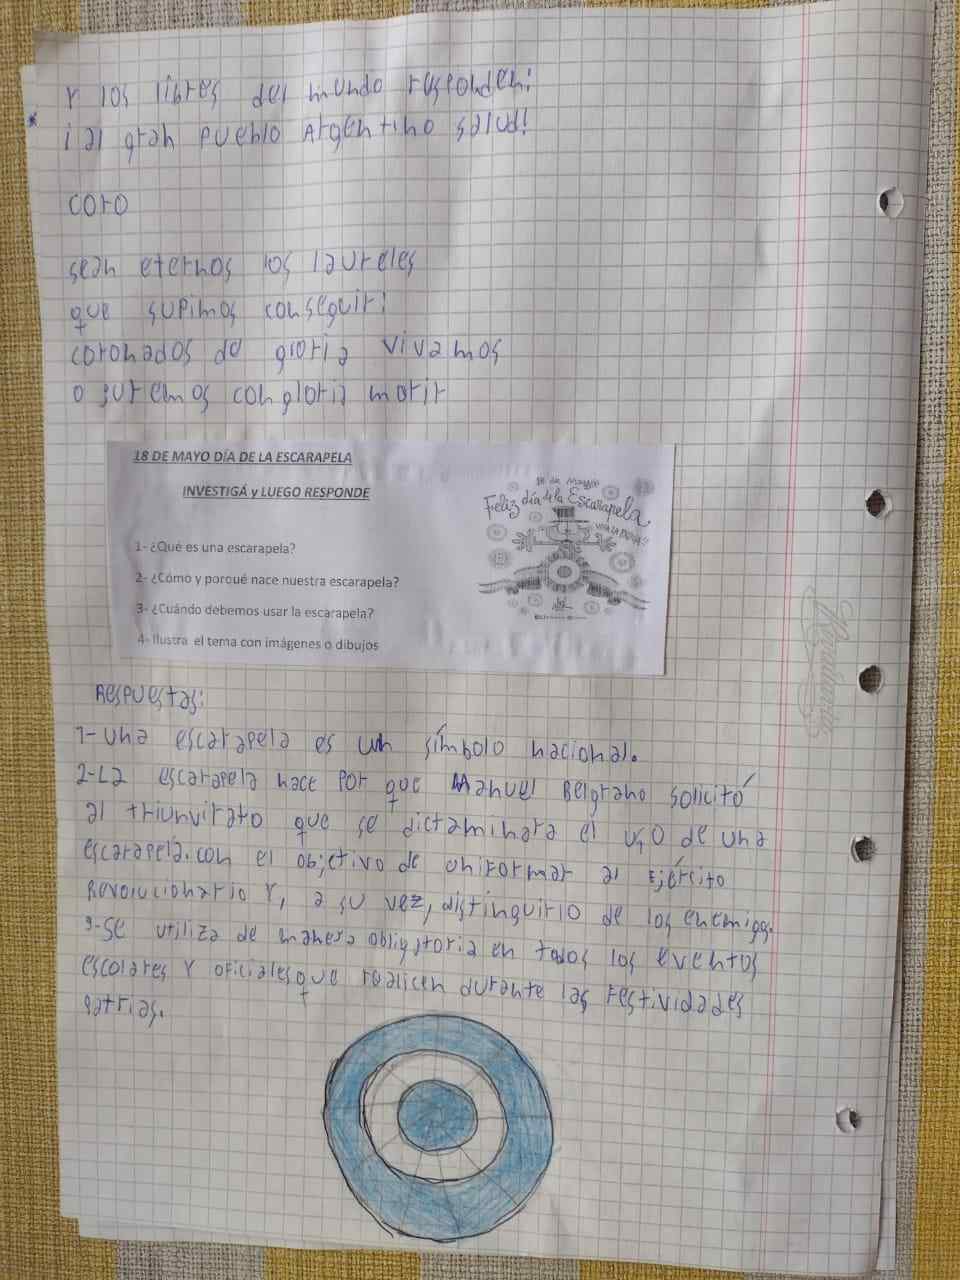 Y los libres del mundo responden:
¡al gran pueblo Argentino salud!
coro
sean eternos los laureles
que supimos conseguir:
coronados de gloria vivamos
o juremos con gloria morir
18 DE MAYO DÍA DE LA ESCARAPELA
INVESTIGÁ y LUEGO RESPONDE
1- ¿Qué es una escarapela?
2- ¿Cómo y porqué nace nuestra escarapela?
3- ¿Cuándo debemos usar la escarapela?
4- Ilustra el tema con imágenes o dibujos
18 de Mayo
Feliz día de la Escarapela
VIVA LA PATRIA!!
Respuestas:
1- una escarapela es un símbolo nacional.
2- La escarapela nace por que Manuel Belgrano solicitó
al triunvirato que se dictaminara el uso de una
escarapela. con el objetivo de uniformar al Ejército
Revolucionario Y, a su vez, distinguirlo de los enemigos.
3- se utiliza de manera obligatoria en todos los eventos
escolares Y oficiales que realicen durante las festividades
patrias.
Rivadavia